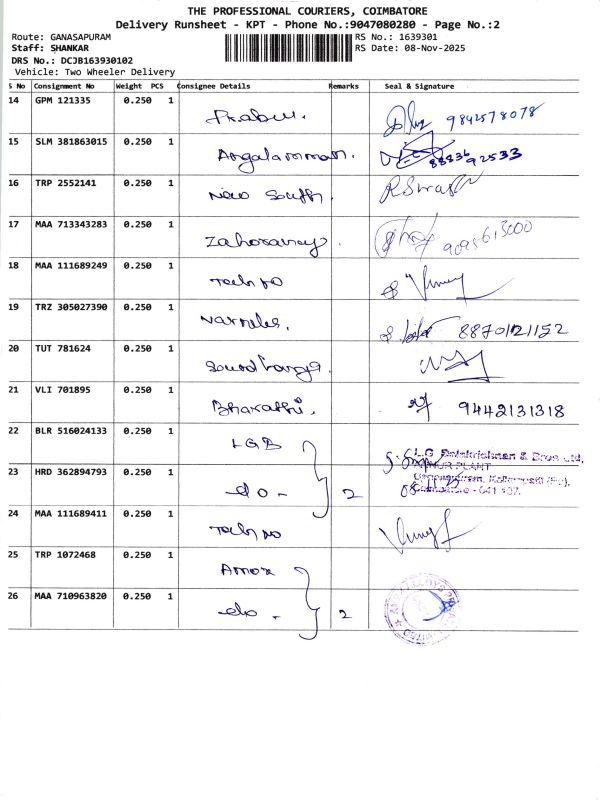 THE PROFESSIONAL COURIERS, COIMBATORE
Delivery Runsheet - KPT - Phone No.:9047080280 - Page No.:2
Route: GANASAPURAM RS No.: 1639301
Staff: SHANKAR RS Date: 08-Nov-2025
DRS No.: DCJB163930102
Vehicle: Two Wheeler Delivery
S No Consignment No Weight PCS Consignee Details Remarks Seal & Signature
14 GPM 121335 0.250 1 Prabu. 9842578078
15 SLM 381863015 0.250 1 Angalamman. 88836 92533
16 TRP 2552141 0.250 1 New South. R Swa
17 MAA 713343283 0.250 1 9095613000
18 MAA 111689249 0.250 1 Techno
19 TRZ 305027390 0.250 1 8870121152
20 TUT 781624 0.250 1
21 VLI 701895 0.250 1 Bharathi. 9442131318
22 BLR 516024133 0.250 1 LGB L.G. Balakrishnan & Bros Ltd,
23 HRD 362894793 0.250 1 do - 2 PLANT
Coimbatore - 641 107.
24 MAA 111689411 0.250 1 Techno
25 TRP 1072468 0.250 1 Amox
26 MAA 710963820 0.250 1 do - 2